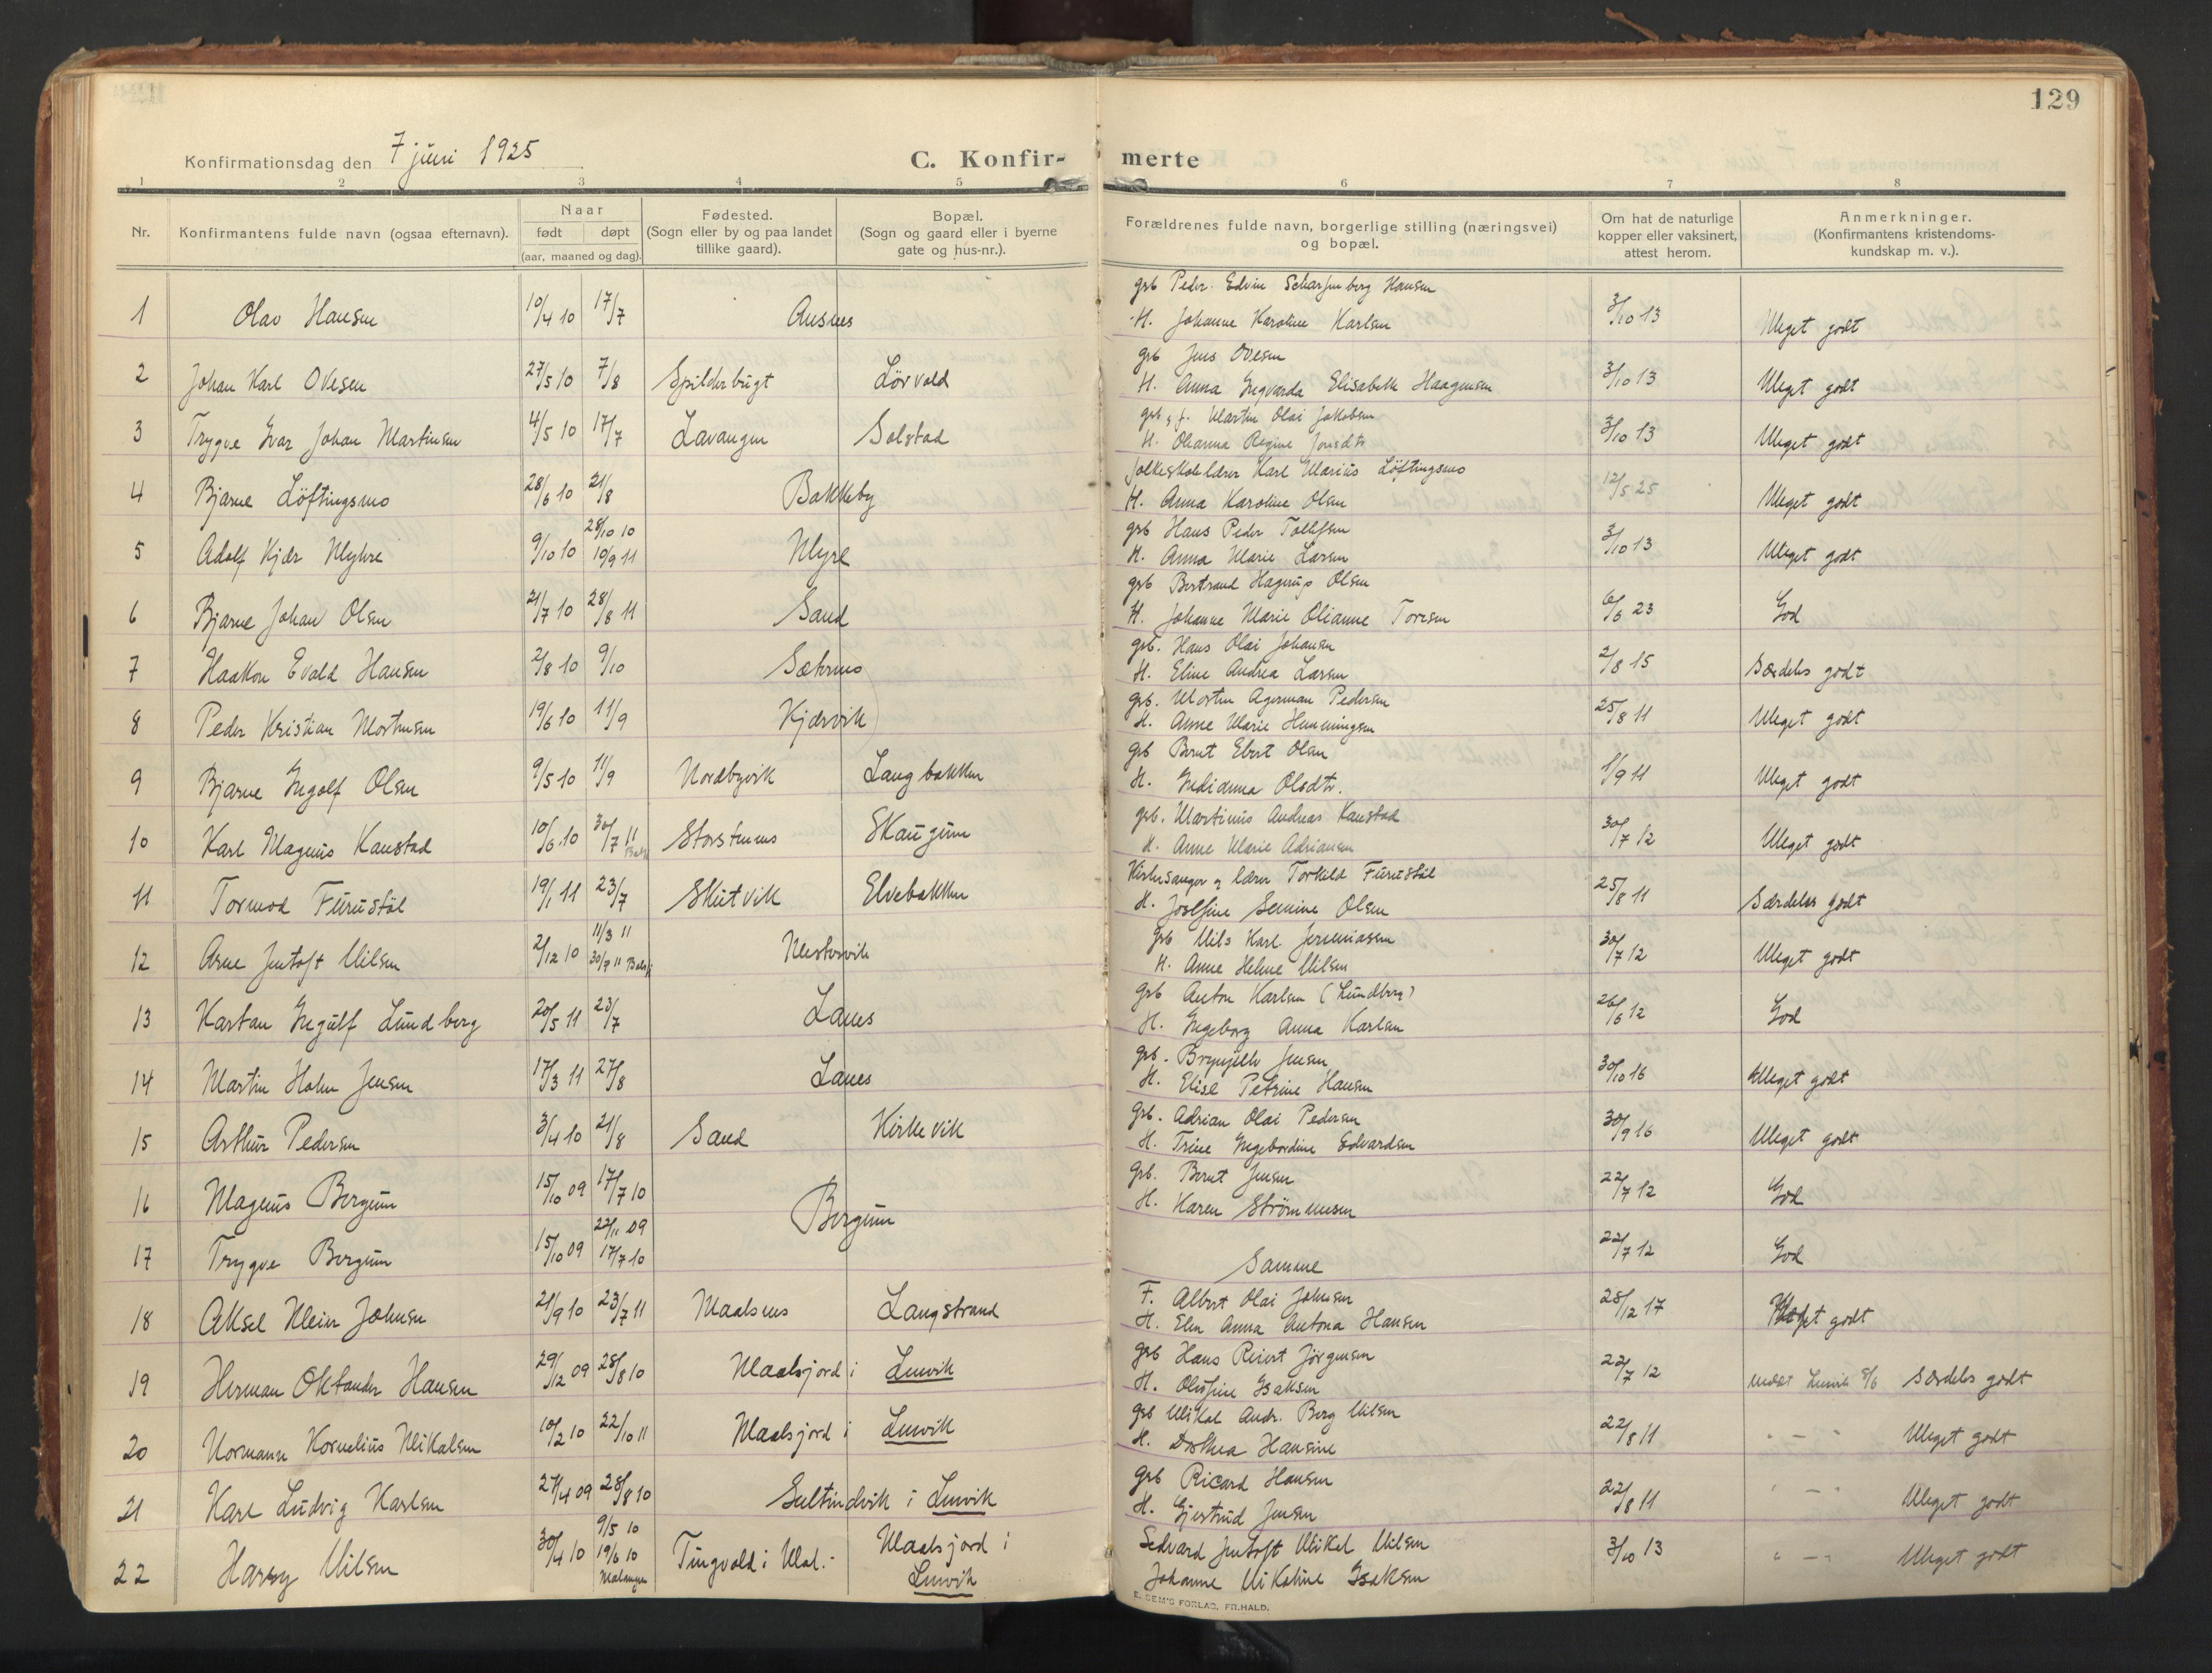 129
Konfirmationsdag den 7 juni 1925
C. Konfir- merte
1 2 3 4 5 6 7 8
Nr.
Konfirmantens fulde navn (ogsaa efternavn).
Naar
født døpt
(aar, maaned og dag).
Fødested.
(Sogn eller by og paa landet
tillike gaard).
Bopæl.
(Sogn og gaard eller i byerne
gate og hus-nr.).
Forældrenes fulde navn, borgerlige stilling (næringsvei)
og bopæl.
Om hat de naturlige
kopper eller vaksinert,
attest herom.
Anmerkninger.
(Konfirmantens kristendoms-
kundskap m. v.).
grb Peder Edvin Scharfenberg Hansen
1 Olav Hansen 10/4 10 17/7 Ansnes H. Johanne Karoline Karlsen 3/10 13 Meget godt
grb Jens Ovesen
2 Johan Karl Ovesen 27/5 10 7/8 Spilderbugt Lörvold H. Anna Ingvarda Elisabeth Haagensen 3/10 13 Meget godt
grb, f. Martin Olai Jakobsen
3 Trygve Ivar Johan Martinsen 4/5 10 17/7 Lavangen Solstad H. Ohanna Regine Jonsdtr 3/10 13 Meget godt
folkeskolelærer Karl Marius Löftingsmo
4 Bjarne Löftingsmo 28/6 10 21/8 Bakkeby H. Anna Karoline Olsen 12/5 25 Meget godt
28/10 10 grb Hans Peder Tollefsen
5 Adolf Kjær Myhre 9/10 10 10/9 11 Myre H. Anna Marie Larsen 3/10 13 Meget godt
grb Bertrand Hagerup Olsen
6 Bjarne Johan Olsen 21/7 10 28/8 11 Sand H. Johanne Marie Olianne Toresen 6/6 23 God
grb. Hans Olai Johansen
7 Haakon Evald Hansen 2/8 10 9/10 Sætermo H. Eline Andrea Larsen 2/8 15 Særdeles godt
grb. Morten Agerman Pedersen
8 Peder Kristian Mortensen 19/6 10 11/9 Kjærvik H. Anne Marie Henningsen 25/8 11 Meget godt
grb Bernt Ebert Olsen
9 Bjarne Ingolf Olsen 9/5 10 11/9 Nordbyvik Langbakken H. Indianna Olsdtr. 1/9 11 Meget godt
grb. Martinus Andreas Kanstad
10 Karl Magnus Kanstad 10/6 10 30/7 11 Storstennes Skaugum H. Anne Marie Adriansen 30/7 12 Meget godt
Kirkesanger og lærer Torkild Furustöl
11 Tormod Furustöl 19/1 11 23/7 Skutvik Elvebakken H. Josefine Semine Olsen 25/8 11 Særdeles godt
11/3 11 grb Nils Karl Jeremiassen
12 Arne Jentoft Nilsen 2/12 10 30/7 11 Balsfj Mestervik H. Anne Helene Nilsen 30/7 12 Meget godt
grb Anton Karlsen (Lundberg)
13 Kartan Ingulf Lundberg 20/5 11 23/7 Lanes H. Ingeborg Anna Karlsen 26/6 12 God
grb. Brynjelv Jensen
14 Martin Holm Jensen 17/3 11 27/8 Lanes H. Elise Petrine Hansen 30/10 16 Meget godt
grb. Adrian Olai Pedersen
15 Arthur Pedersen 3/4 10 21/8 Sand Kirkevik H. Trine Ingebordine Edvardsen 30/9 16 Meget godt
grb. Bernt Jensen
16 Magnus Bergum 15/10 09 17/7 10 Bergum H. Karen Strømmesen 22/7 12 God
22/11 09
17 Trygve Bergum 15/10 09 17/7 10 Samme 22/7 12 God
F. Albert Olai Johnsen
18 Aksel Klein Johnsen 21/9 10 23/7 11 Maalsnes Langstrand H. Elen Anna Antona Hansen 28/12 17 Meget godt
grb Hans Reiert Jörgensen
19 Herman Oktander Hansen 29/12 09 28/8 10 Maalsjord i Lenvik H. Olufine Isaksen 22/7 12 Lenvik 8/6 Særdeles godt
grb Mikal Andr. Berg Nilsen
20 Normann Kornelius Mikalsen 10/2 10 22/10 11 Maalsjord i Lenvik H. Dorthea Hansine 22/8 11 " - " Meget godt
grb Ricard Hansen
21 Karl Ludvig Karlsen 27/4 09 28/8 10 Gultindvik i Lenvik H. Gjertrud Jensen 22/8 11 " - " Meget godt
9/5 10 Sedvard Jentoft Mikal Nilsen
22 Harry Nilsen 30/4 10 19/6 10 Malangen Tingvold i Mal. Maalsjord i Lenvik Johanne Nikoline Isaksen 3/10 13 " - " Meget godt
E. SEM'S FORLAG, FR.HALD.